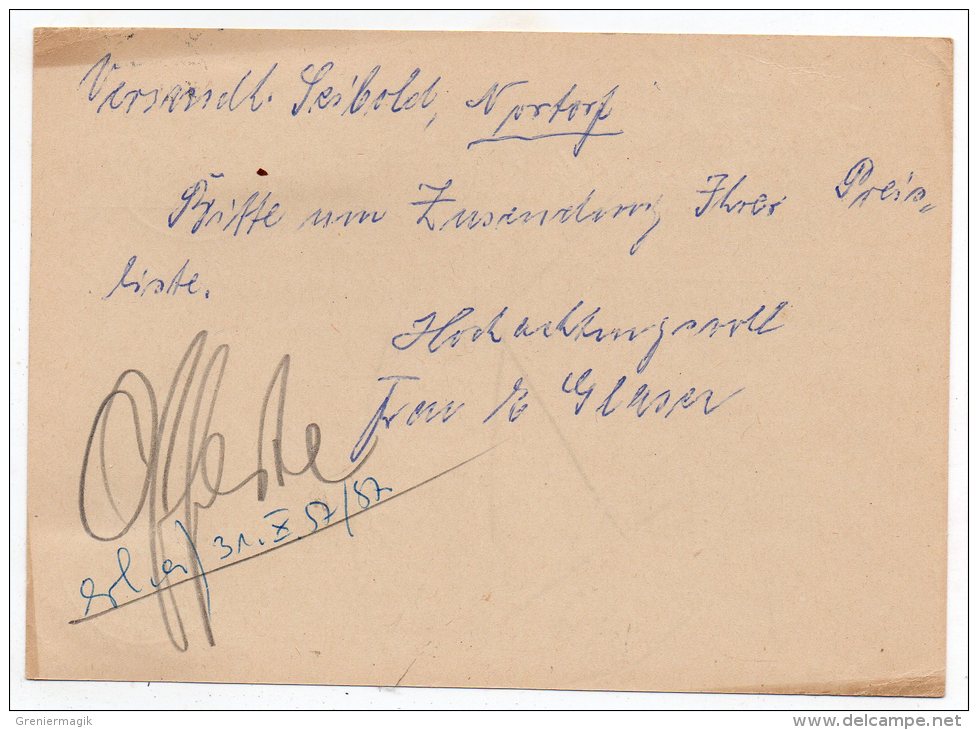 Versandh. Seibold, Nortorf
Bitte um Zusendung Ihrer Preis-
liste.
Hochachtungsvoll
Frau E Glaser
Offerte
31. X. 57/57
Greniermagik
delcampe.net